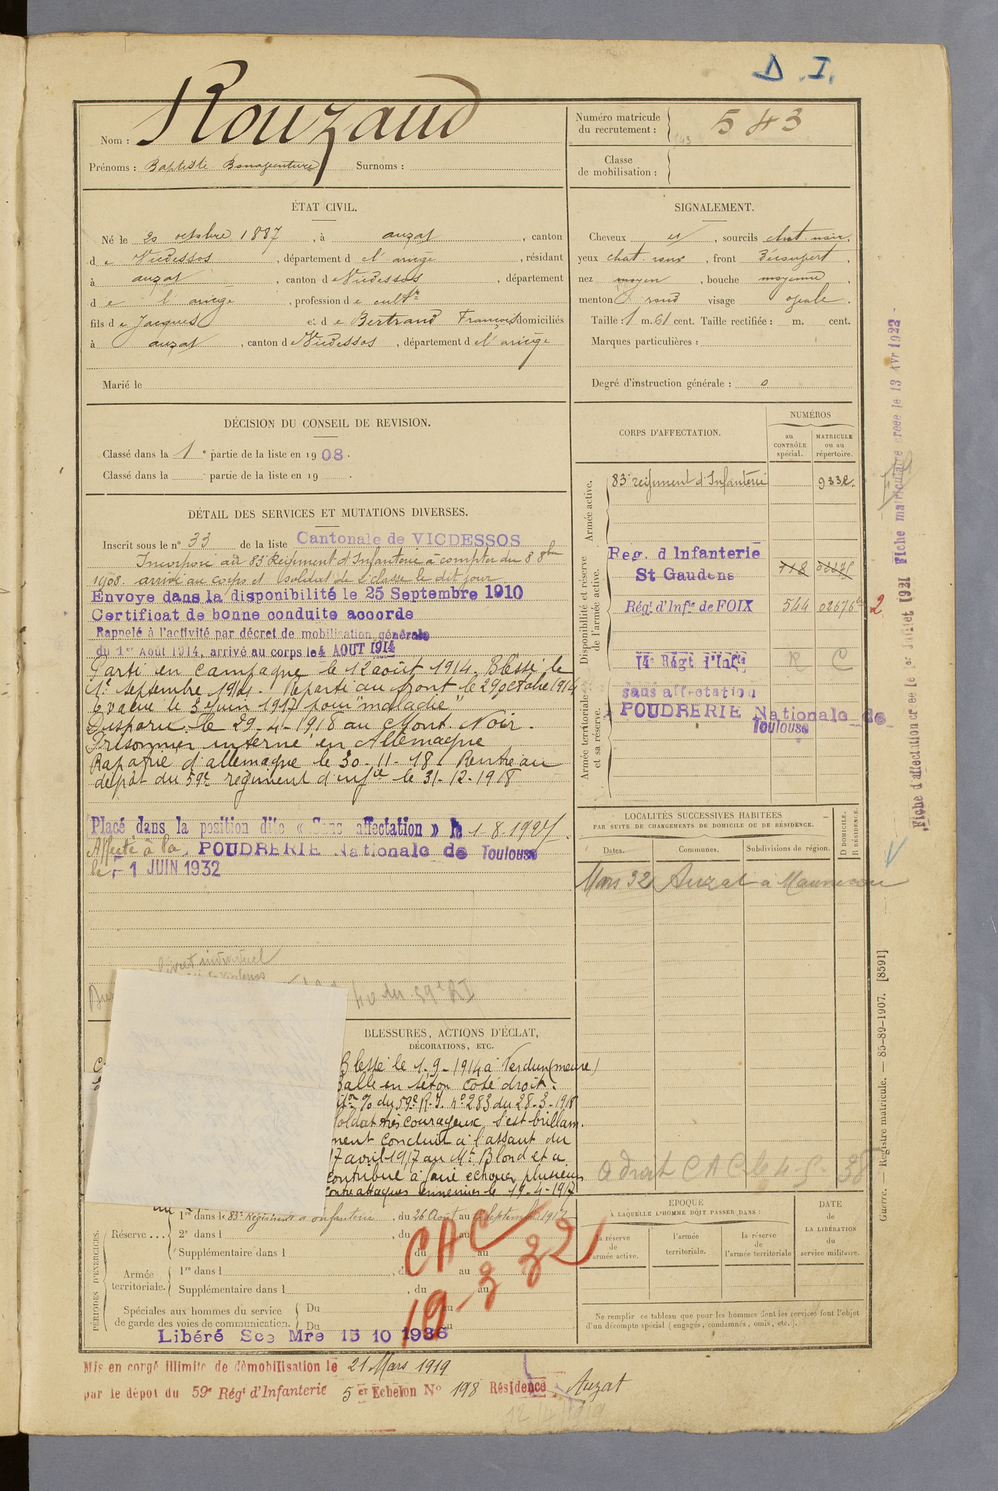 D.I.
Nom : Rouzaud
Prénoms : Baptiste Bonaventure Surnoms :
Numéro matricule du recrutement : 543
Classe de mobilisation :
ÉTAT CIVIL.
Né le 20 octobre 1887, à auzat, canton
de Vicdessos, département de l'ariège, résidant
à auzat, canton de Vicdessos, département
de l'ariège, profession de cultr
fils de Jacques et de Bertrand Françoise domiciliés
à auzat, canton de Vicdessos, département de l'ariège
Marié le
SIGNALEMENT.
Cheveux et, sourcils chat. noir.
yeux chat. roux, front découvert,
nez moyen, bouche moyenne
menton rond visage ovale.
Taille : 1 m. 61 cent. Taille rectifiée : m. cent.
Marques particulières :
Degré d'instruction générale : 0
DÉCISION DU CONSEIL DE REVISION.
Classé dans la 1e partie de la liste en 1908.
Classé dans la partie de la liste en 19
DÉTAIL DES SERVICES ET MUTATIONS DIVERSES.
Inscrit sous le n° 33 de la liste Cantonale de VICDESSOS
Incorporé au 83e Régiment d'Infanterie à compter du 8 8bre
1908. arrivé au corps et soldat de 2e classe le dit jour
Envoyé dans la disponibilité le 25 Septembre 1910
Certificat de bonne conduite accordé
Rappelé à l'activité par décret de mobilisation générale
du 1er Août 1914, arrivé au corps le 4 AOUT 1914
Parti en campagne le 12 août 1914. Blessé le
1er septembre 1914. Reparti au front le 29 octobre 1914
Evacué le 3 juin 1917 pour "maladie"
Disparu le 29-4-1918 au Mont Noir.
Prisonnier interné en Allemagne
Rapatrié d'allemagne le 30-11-18. Rentré au
dépôt du 59e régiment d'infie le 31-12-1918
Placé dans la position dite « Sans affectation » le 1-8-1927
Affecté à la POUDRERIE Nationale de Toulouse
le 1 JUIN 1932
livret individuel
59e RI
CORPS D'AFFECTATION.
NUMÉROS
au CONTRÔLE spécial.
MATRICULE ou au répertoire.
Armée active.
83e régiment d'Infanterie 9332.
Disponibilité et réserve de l'armée active.
Reg. d Infanterie
St Gaudens 118
Régt d'Infie de FOIX 544 02676 2
14e Régt d'Infie R C
Armée territoriale et sa réserve.
sans affectation
POUDRERIE Nationale de
Toulouse
LOCALITÉS SUCCESSIVES HABITÉES
PAR SUITE DE CHANGEMENTS DE DOMICILE OU DE RÉSIDENCE.
Dates. Communes. Subdivisions de région. D DOMICILE. R RÉSIDENCE.
Mars 32 Auzat à
a droit CAC le 4-5-38
BLESSURES, ACTIONS D'ÉCLAT,
DÉCORATIONS, ETC.
Blessé le 1-9-1914 à Verdun (meuse)
balle en séton côté droit.
du 59e R.I. n° 283 du 28-3-1918
soldat très courageux, s'est brillam.
ment conduit à l'assaut du
17 avril 1917 au Mt Blond et a
contribué à faire échouer plusieurs
contre attaques ennemies le 19-4-1917
PÉRIODES D'EXERCICES.
Réserve ...
1re dans le 83e Régiment d'infanterie, du 26 Août au septembre 1912
2e dans l , du au
Supplémentaire dans l , du au
Armée territoriale.
1re dans l , du au
Supplémentaire dans l , du au
Spéciales aux hommes du service de garde des voies de communication. Du au
Du au
CAC
19-3 32
Libéré Sce Mre 15 10 1936
ÉPOQUE
À LAQUELLE L'HOMME DOIT PASSER DANS :
la réserve de l'armée active.
l'armée territoriale.
la réserve de l'armée territoriale
DATE de LA LIBÉRATION du service militaire.
Ne remplir ce tableau que pour les hommes dont les services font l'objet
d'un décompte spécial (engagés, condamnés, omis, etc.).
Mis en congé illimité de démobilisation le 21 Mars 1919
par le dépôt du 59e Régt d'Infanterie 5 er Echelon N° 198 Résidence Auzat
Fiche d'affectation créée le 1er Juillet 1921 Fiche matriculaire créée le 13 Avr 1922
Guerre. — Registre matricule. — 85-89-1907. [8591]